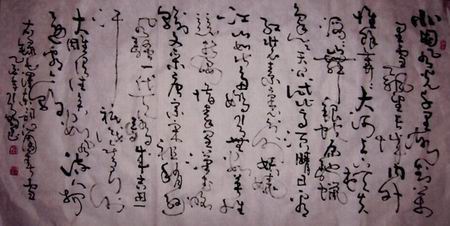 北国风光千里冰封万
里雪飘望长城内外
惟余莽莽大河上下顿失
滔滔山舞银蛇原驰蜡
象欲与天公试比高须晴日看
红装素裹分外妖娆
江山如此多娇引无数英雄
竞折腰惜秦皇汉武略输
文采唐宗宋祖稍逊
风骚一代天骄成吉思
汗只识弯弓射
大雕俱往矣数风流人物
还看今朝